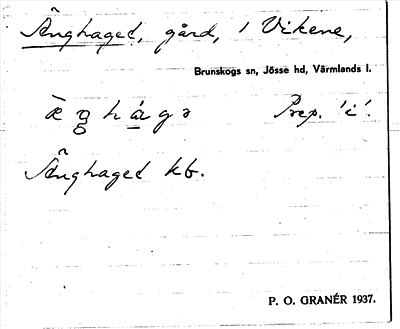 Änghaget, gård, i Vikene,
Brunskogs sn, Jösse hd, Värmlands l.
Prep. 'i'.
Änghaget kb.
P. O. GRANÉR 1937.